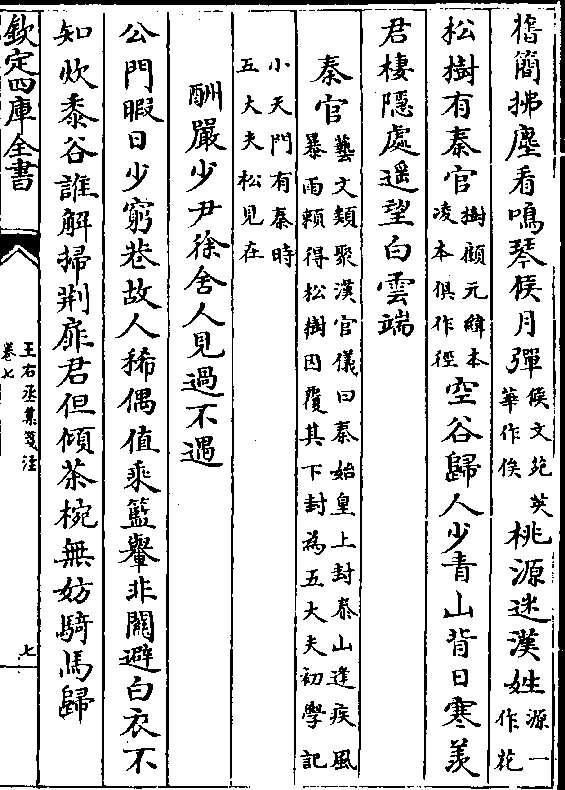 舊簡拂塵看鳴琴候月彈候文苑英華作俟桃源迷漢姓源一作花
松樹有秦官樹顧元緯本凌本俱作徑空谷歸人少青山背日寒羨
君棲隱處遥望白雲端
秦官藝文類聚漢官儀曰秦始皇上封泰山逢疾風暴雨頼得松樹因覆其下封為五大夫初學記
小天門有秦時五大夫松見在
酬嚴少尹徐舍人見過不遇
公門暇日少窮巷故人稀偶值乘籃轝非關避白衣不
知炊黍谷誰解掃荆扉君但傾茶椀無妨騎馬歸
欽定四庫全書
王右丞集箋注
卷七
七